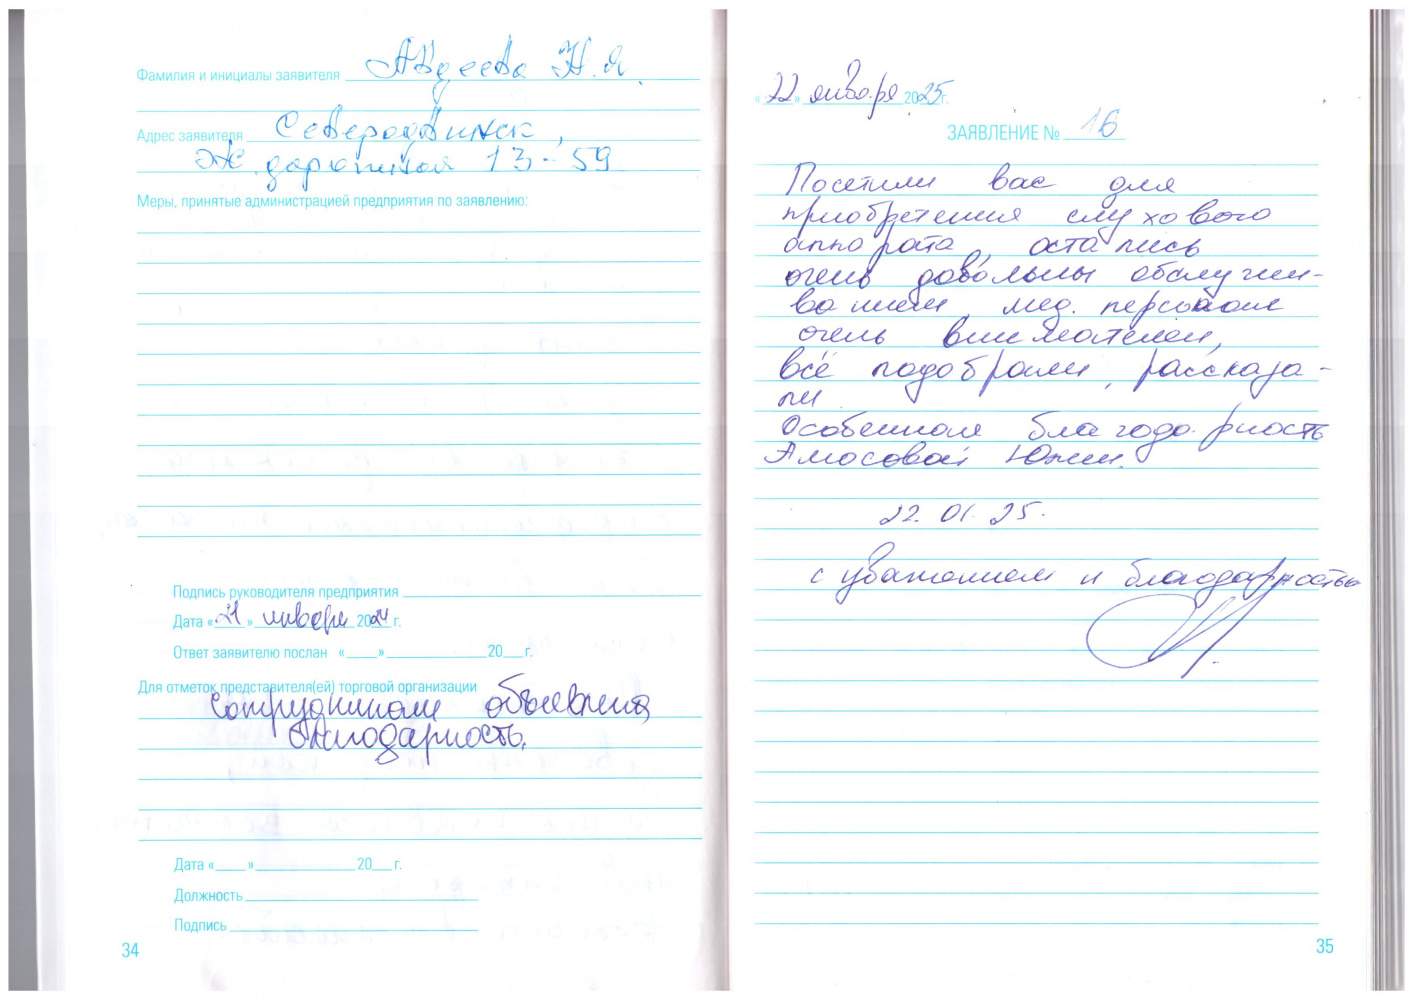 Фамилия и инициалы заявителя Авдеева Н.Я.
Адрес заявителя Северодвинск,
13-59
Меры, принятые администрацией предприятия по заявлению:
Подпись руководителя предприятия
Дата «21» января 2024 г.
Ответ заявителю послан «___» ___ 20__г.
Для отметок представителя(ей) торговой организации
Сотрудникам объявлена
благодарность.
Дата «___» ___ 20__ г.
Должность
Подпись
34
«22» января 2025г.
ЗАЯВЛЕНИЕ № 16
Посетили вас для
приобретения слухового
аппарата, остались
очень довольны обслужи-
ванием, мед. персонал
очень внимателен,
всё подобрали, рассказа-
ли.
Особенная благодарность
Амосовой Юлии.
22.01.25.
с уважением и благодарностью
35